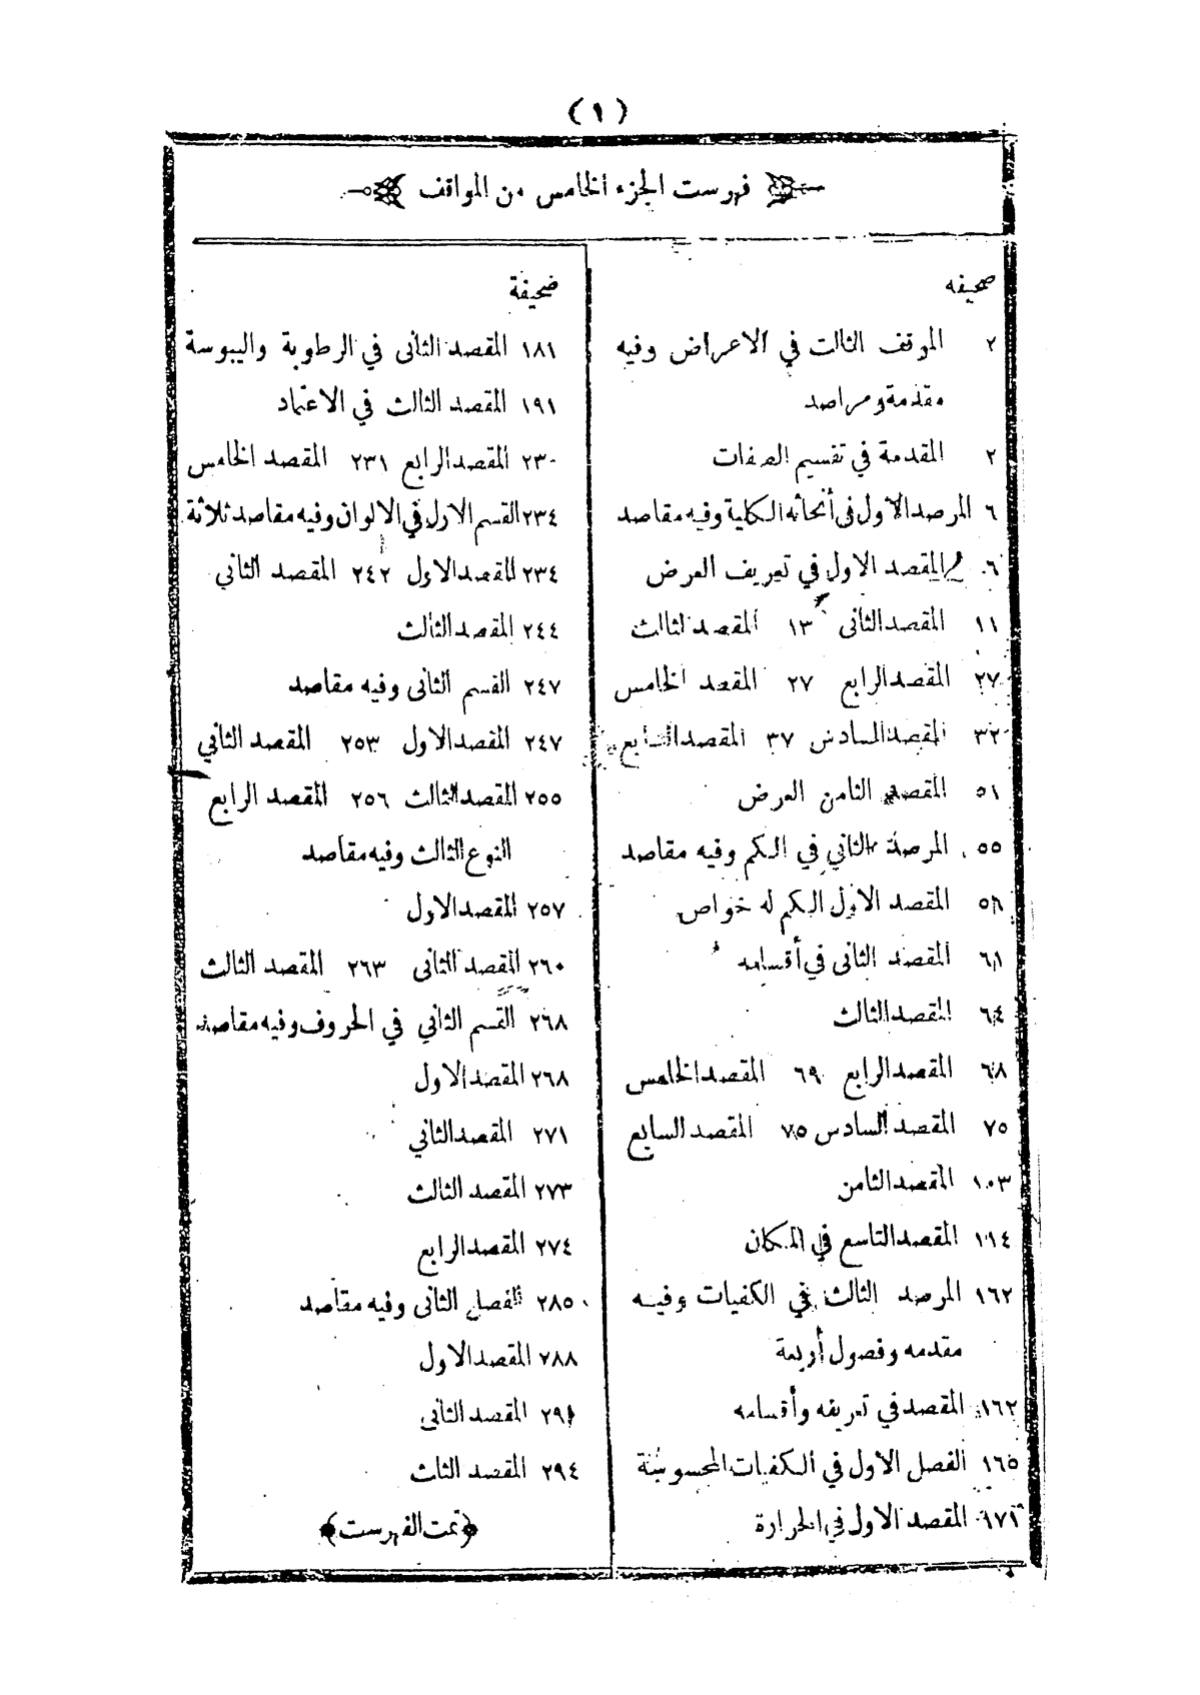 (١)
فهرست الجزء الخامس من المواقف
صحيفه
٢ الموقف الثالث في الاعراض وفيه
مقدمة ومراصد
٢ المقدمة في تقسيم الصفات
٦ المرصد الاول فى أنحائه الكلية وفيه مقاصد
٦ المقصد الاول في تعريف العرض
١١ المقصد الثانى ١٣ المقصد الثالث
٢٧ المقصد الرابع ٢٧ المقصد الخامس
٣٢ المقصد السادس ٣٧ المقصد السابع
٥١ المقصد الثامن العرض
٥٥ المرصد الثاني في الكم وفيه مقاصد
المقصد الاول الكم له خواص
٦١ المقصد الثانى في أقسامه
٦٤ المقصد الثالث
٦٨ المقصد الرابع ٦٩ المقصد الخامس
٧٥ المقصد السادس ٧٥ المقصد السابع
١٠٣ المقصد الثامن
١١٤ المقصد التاسع في المكان
١٦٢ المرصد الثالث في الكفيات وفيه
مقدمه وفصول أربعة
١٦٢ المقصد في تعريفه وأقسامه
١٦٥ الفصل الاول في الكفيات المحسوسة
المقصد الاول في الحرارة
صحيفة
١٨١ المقصد الثانى في الرطوبة واليبوسة
١٩١ المقصد الثالث في الاعتماد
٢٣٠ المقصد الرابع ٢٣١ المقصد الخامس
٢٣٤ القسم الاول في الالوان وفيه مقاصد ثلاثة
٢٣٤ المقصد الاول ٢٤٢ المقصد الثاني
٢٤٤ المقصد الثالث
٢٤٧ القسم الثانى وفيه مقاصد
٢٤٧ المقصد الاول ٢٥٣ المقصد الثاني
٢٥٥ المقصد الثالث ٢٥٦ المقصد الرابع
النوع الثالث وفيه مقاصد
٢٥٧ المقصد الاول
٢٦٠ المقصد الثانى ٢٦٣ المقصد الثالث
٢٦٨ القسم الثاني في الحروف وفيه مقاصد
٢٦٨ المقصد الاول
٢٧١ المقصد الثاني
٢٧٣ المقصد الثالث
٢٧٤ المقصد الرابع
٢٨٥ الفصل الثانى وفيه مقاصد
٢٨٨ المقصد الاول
٢٩١ المقصد الثانى
٢٩٤ المقصد الثاث
﴿تمت الفهرست﴾